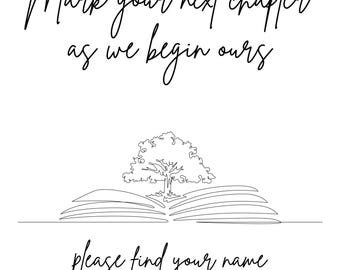 Mark your next chapter
as we begin ours
please find your name